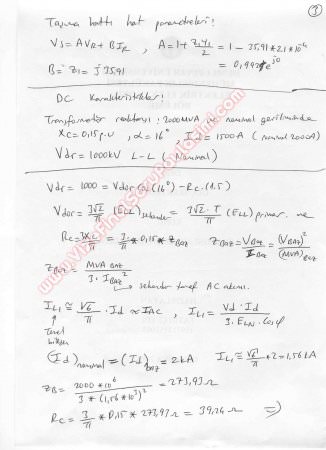 ①
Taşıma hattı hat parametreleri:
Vs = AVR + BIR , A = 1 + Z1Y1/2 = 1 - 35,91*2,1*10⁻⁴
B = Z1 = j35,91
DC Karakteristikleri
Transformatör reaktansı: 2000MVA ve nominal geriliminde
Xc = 0,15 p.u , α = 16° , Id = 1500A (nominal 2000A)
Vdr = 1000kV L-L (Nominal)
Vdr = 1000 = Vdor cos(16°) - Rc.(1.5)
Vdor = 3√2/π (ELL)sekonder = 3√2.T/π (ELL)primer. ve
Rc = 3Xc/π = 3/π * 0,15 * Zbaz Zbaz = Vbaz/Ibaz = (Vbaz)²/(MVA)baz
Zbaz = MVA baz / 3.Ibaz²
sekonder taraf AC akımı.
IL1 ≅ √6/π . Id ∝ IAC , IL1 = Vd.Id / 3.ELN.cosφ
Temel bileşen
(Id)nominal = (Id)baz = 2kA IL1 ≅ √6/π * 2 = 1,56kA
ZB = 2000*10⁶ / 3*(1,56*10³)² = 273,93Ω
Rc = 3/π * 0,15 * 273,93Ω = 39,24Ω ⇒